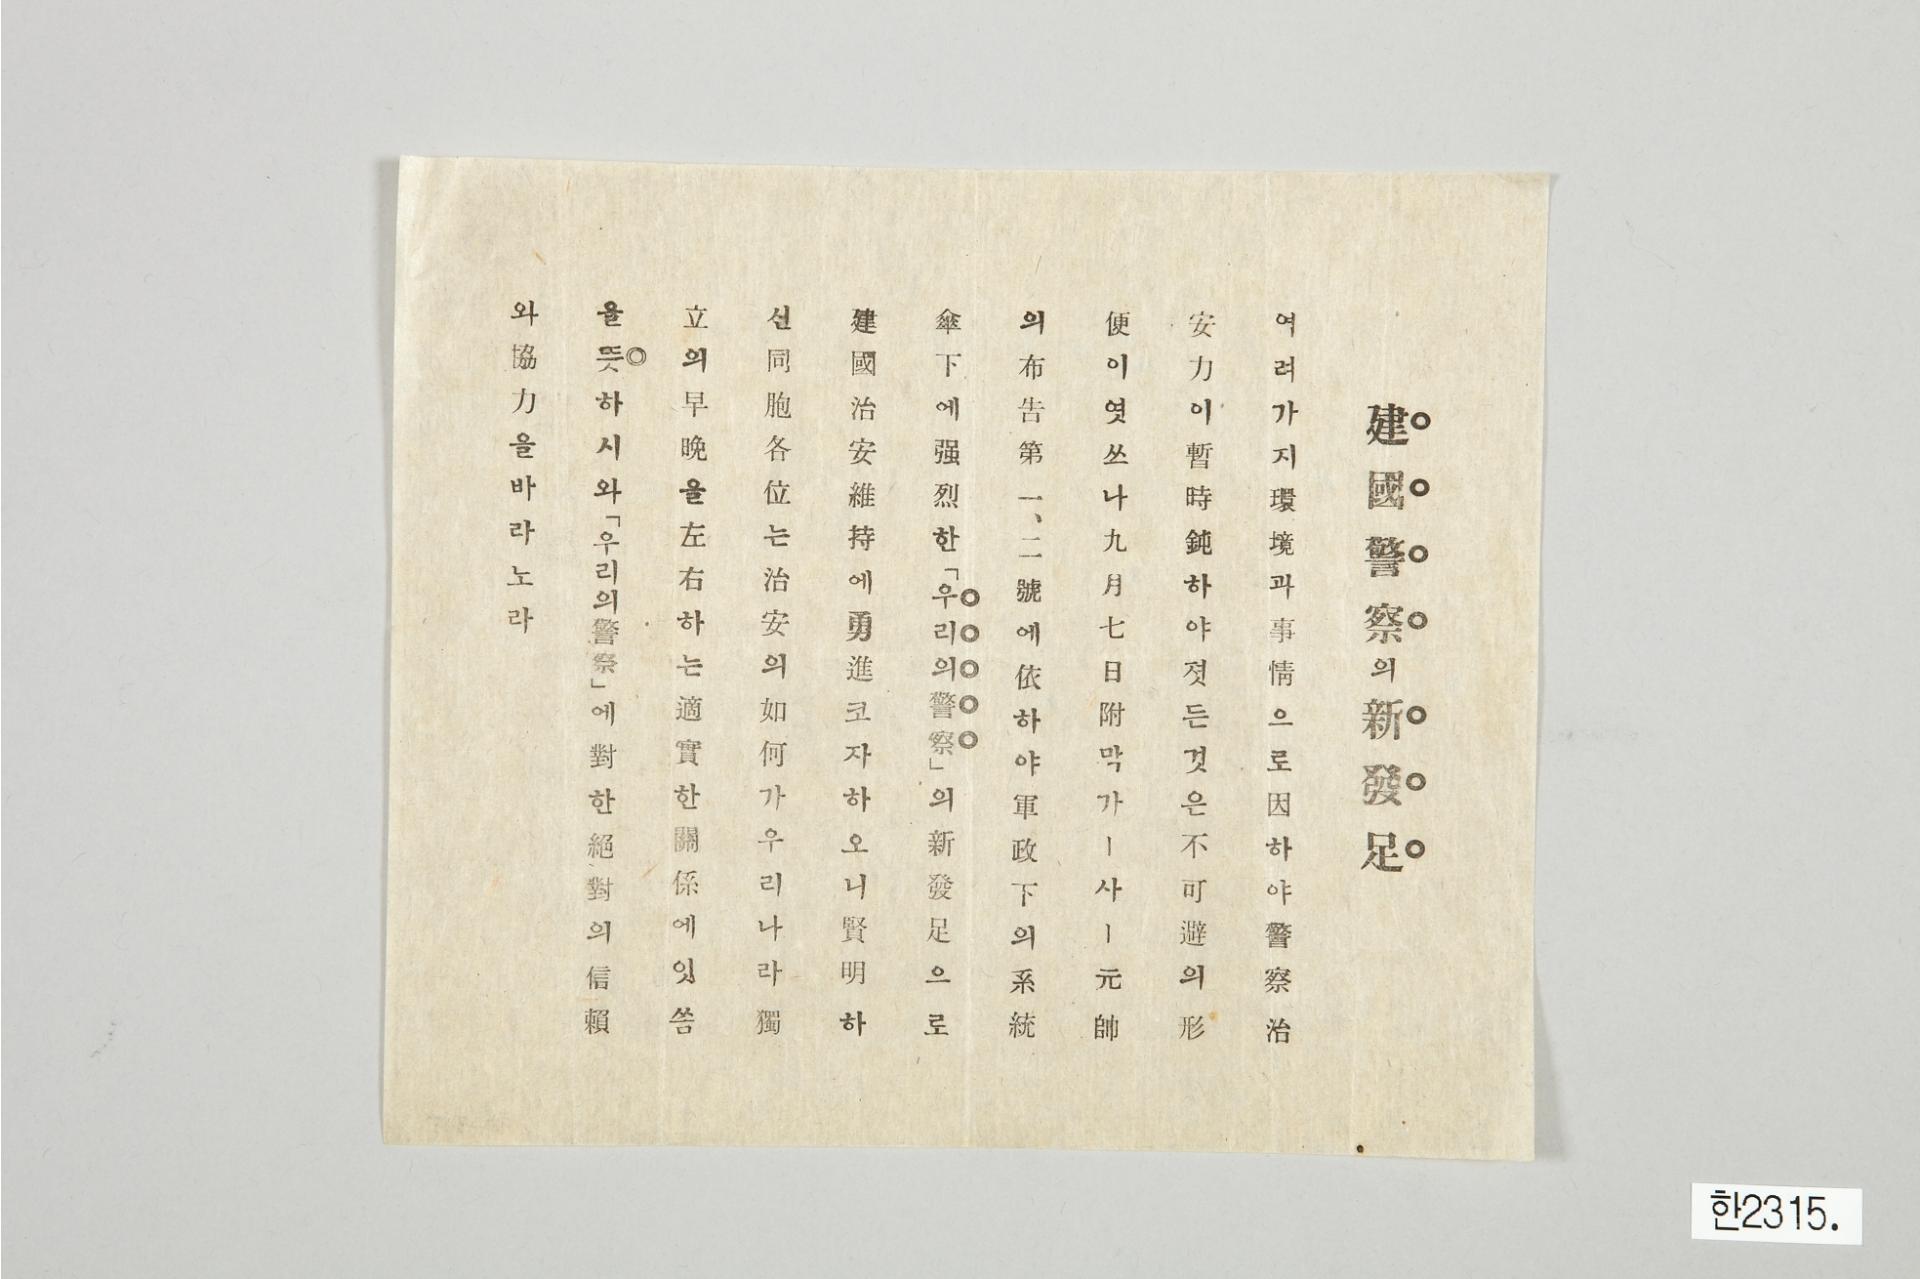 建國警察의新發足
여려가지環境과事情으로因하야警察治
安力이暫時鈍하야젓든것은不可避의形
便이엿쓰나九月七日附막가ー사ー元帥
의布告第一、二號에依하야軍政下의系統
傘下에强烈한「우리의警察」의新發足으로
建國治安維持에勇進코자하오니賢明하
신同胞各位는治安의如何가우리나라獨
立의早晩을左右하는適實한關係에잇씀
을뜻하시와「우리의警察」에對한絕對의信賴
와協力을바라노라
한2315.